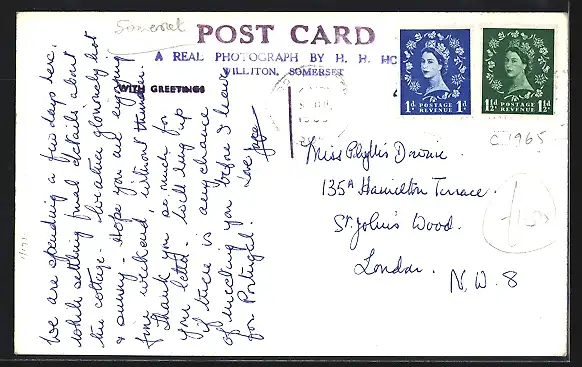 Somerset
POST CARD
A REAL PHOTOGRAPH BY H. H. HO
WILLITON, SOMERSET
WITH GREETINGS
1D POSTAGE REVENUE 1D
1½D POSTAGE REVENUE 1½D
C 1965
We are spending a few days here,
while settling final details about
the cottage - weather gloriously hot
& sunny - Hope you are enjoying
fine weekend, without thunder.
Thank you so much for
your letter. Will ring up
if there is any chance
of meeting you before I leave
for Portugal. Love
Miss Phyllis Downie.
135A Hamilton Terrace.
St. John's Wood.
London.
N.W. 8